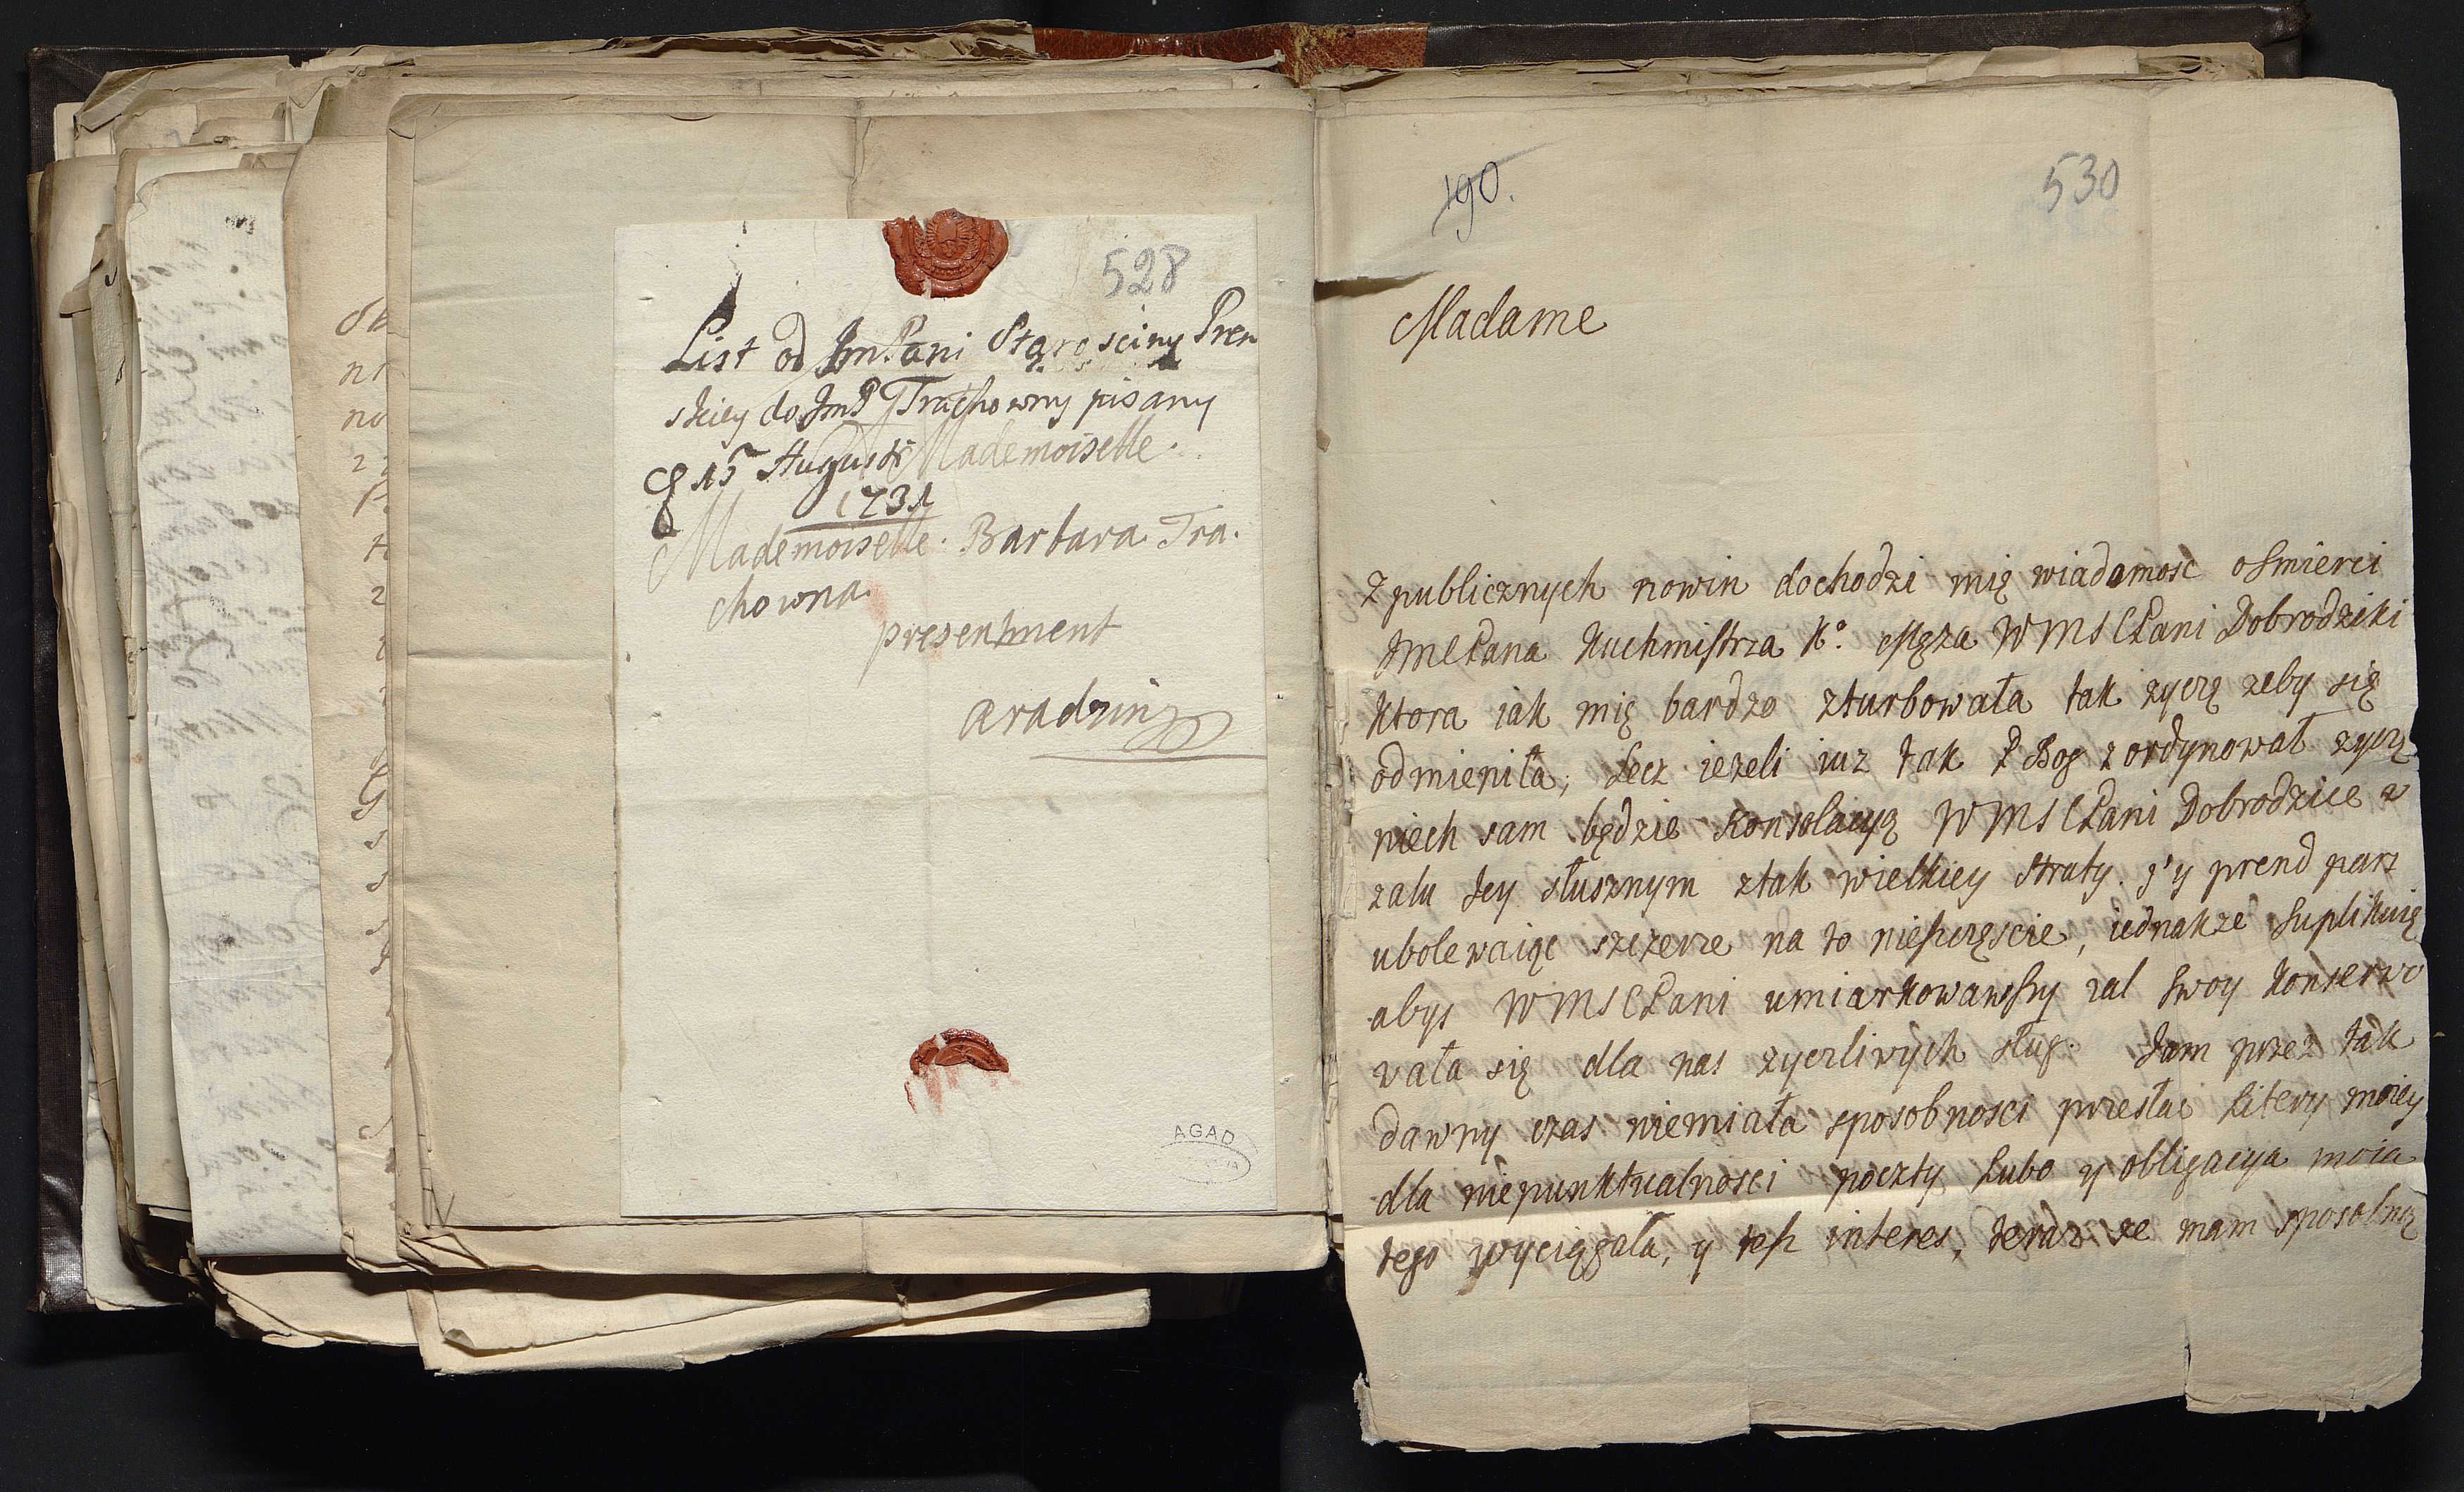 528
List od JmPani Starosciny Pren
skiey do JmP Trachowny pisany
15 Augusti
1731
Mademoiselle
Mademoiselle Barbara Tra.
chowna.
presentment
a radziny
AGAD
190.
530
Madame
Z publicznych nowin dochodzi mię wiadomosc o Smierci
JmCPana Kuchmistrza Kº. Męża WMSCPani Dobrodziki
Ktora iak mię bardzo zturbowała tak zyczę zeby się
odmieniła; Lecz iezeli iuz tak P Bog zordynował zyczę
niech sam będzie Konsolacyą WMSCPani Dobrodzice w
zalu Jey słusznym ztak wielkiey straty. j'y prend part
ubolewaiąc szczerze na to nieszczęscie, iednakze Suplikuię
abys WMSCPani umiarkowawszy zal Swoy Konserwo
wała się dla nas zyczliwych sług. Jam przez tak
dawny czas niemiała sposobnosci przesłac Litery moiey
dla niepunktualnosci poczty Lubo y obligacya moia
tego wyciągała, y tesz interes, teraz ze mam sposobną